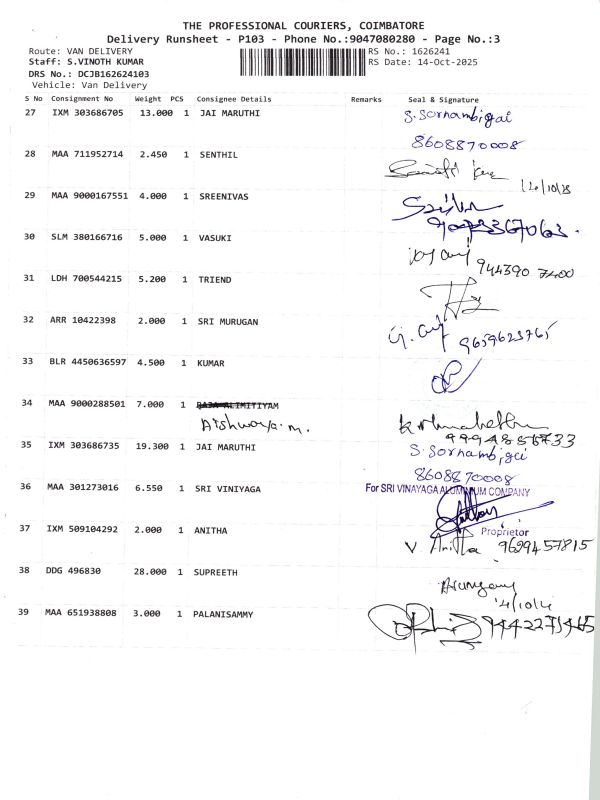 THE PROFESSIONAL COURIERS, COIMBATORE
Delivery Runsheet - P103 - Phone No.:9047080280 - Page No.:3
Route: VAN DELIVERY RS No.: 1626241
Staff: S.VINOTH KUMAR RS Date: 14-Oct-2025
DRS No.: DCJB162624103
Vehicle: Van Delivery
S No Consignment No Weight PCS Consignee Details Remarks Seal & Signature
27 IXM 303686705 13.000 1 JAI MARUTHI S. Sornambigai
8608870008
28 MAA 711952714 2.450 1 SENTHIL
14/10/25
29 MAA 9000167551 4.000 1 SREENIVAS
30 SLM 380166716 5.000 1 VASUKI
944390 7400
31 LDH 700544215 5.200 1 TRIEND
32 ARR 10422398 2.000 1 SRI MURUGAN
9659623765
33 BLR 4450636597 4.500 1 KUMAR
34 MAA 9000288501 7.000 1
Aishwarya.m.
35 IXM 303686735 19.300 1 JAI MARUTHI S. Sornambigai
8608870008
36 MAA 301273016 6.550 1 SRI VINIYAGA For SRI VINAYAGA ALUMINIUM COMPANY
Proprietor
37 IXM 509104292 2.000 1 ANITHA V Anitha 9629457815
38 DDG 496830 28.000 1 SUPREETH
39 MAA 651938808 3.000 1 PALANISAMMY